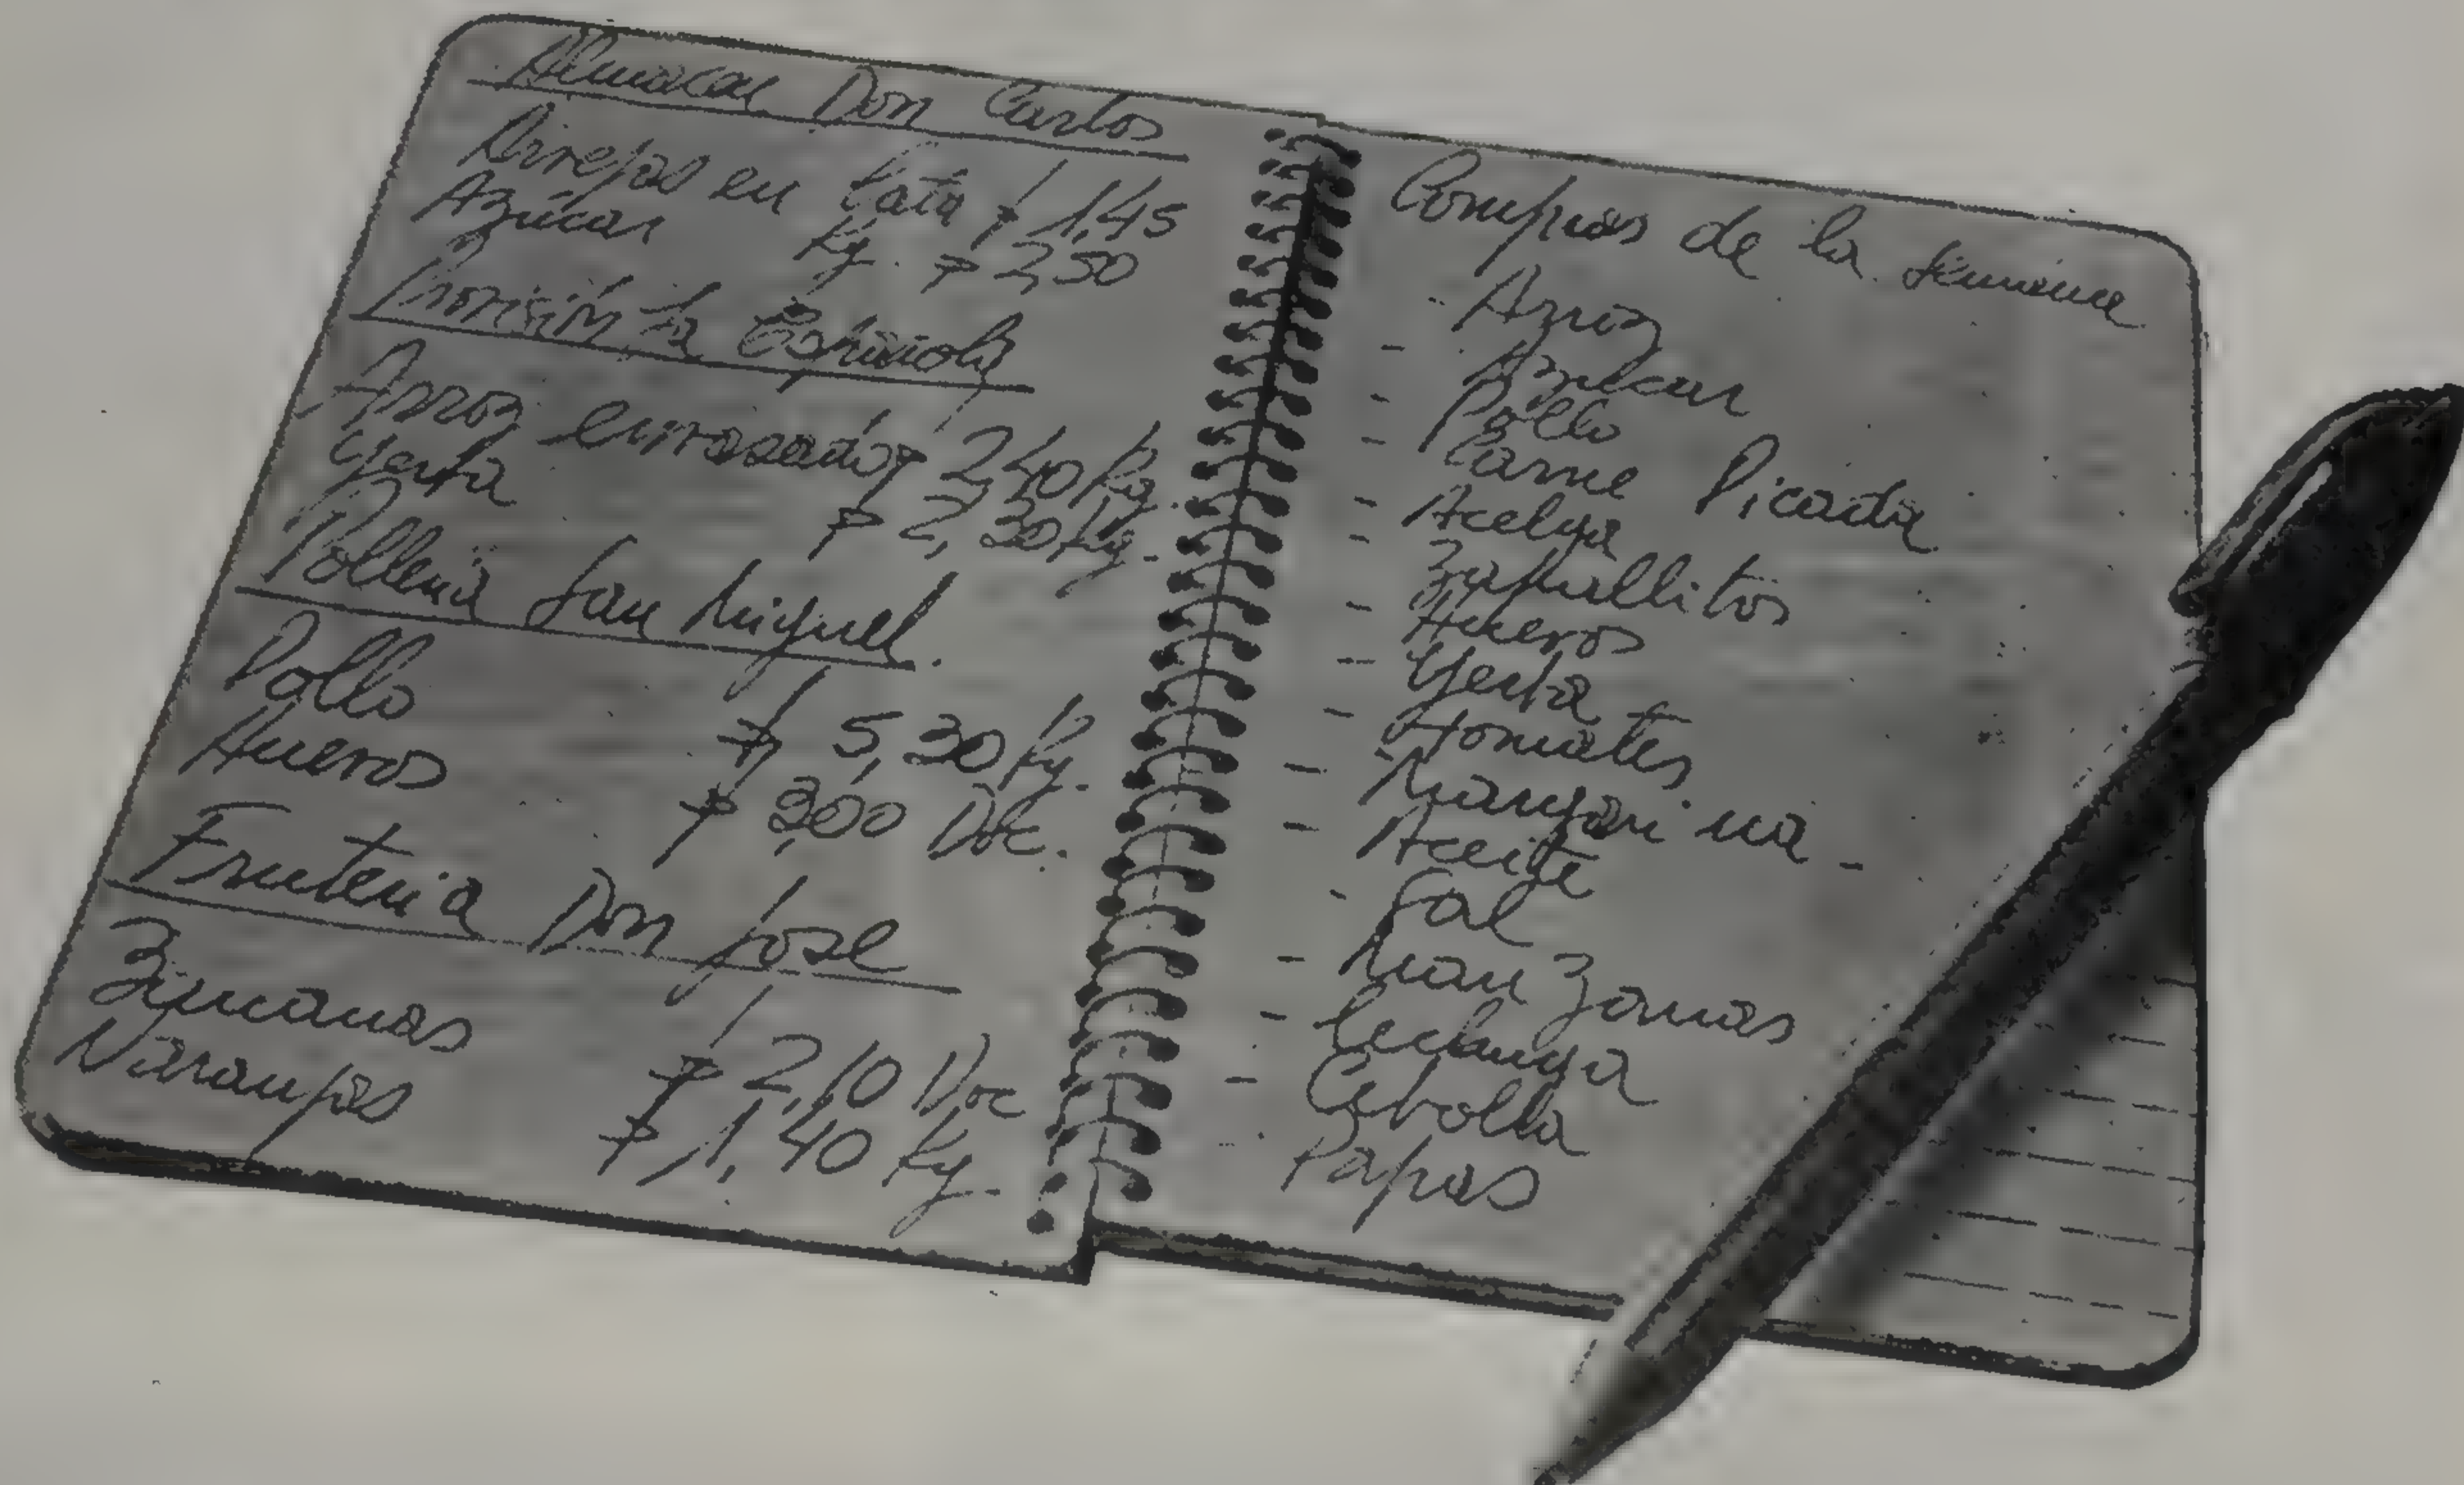 Almacen Don Carlos
Arvejas en lata $ 1,45
Azúcar Kg. $ 2,50
Provisión la Española
Arroz envasado $ 2,40 Kg.
Yerba $ 2,30 Kg.
Polleria San Miguel.
Pollo $ 5,30 Kg.
Huevos $ 3,00 Doc.
Fruteria Don José
Bananas $ 2,10 Doc
Naranjas $ 1,40 Kg.
Compras de la semana
- Arroz
- Azúcar
- Pollo
- Carne Picada
- Acelga
- Zapallitos
- Huevos
- Yerba
- Tomates
- Margarina -
- Aceite
- Sal
- Manzanas
- Lechuga
- Cebolla
- Papas